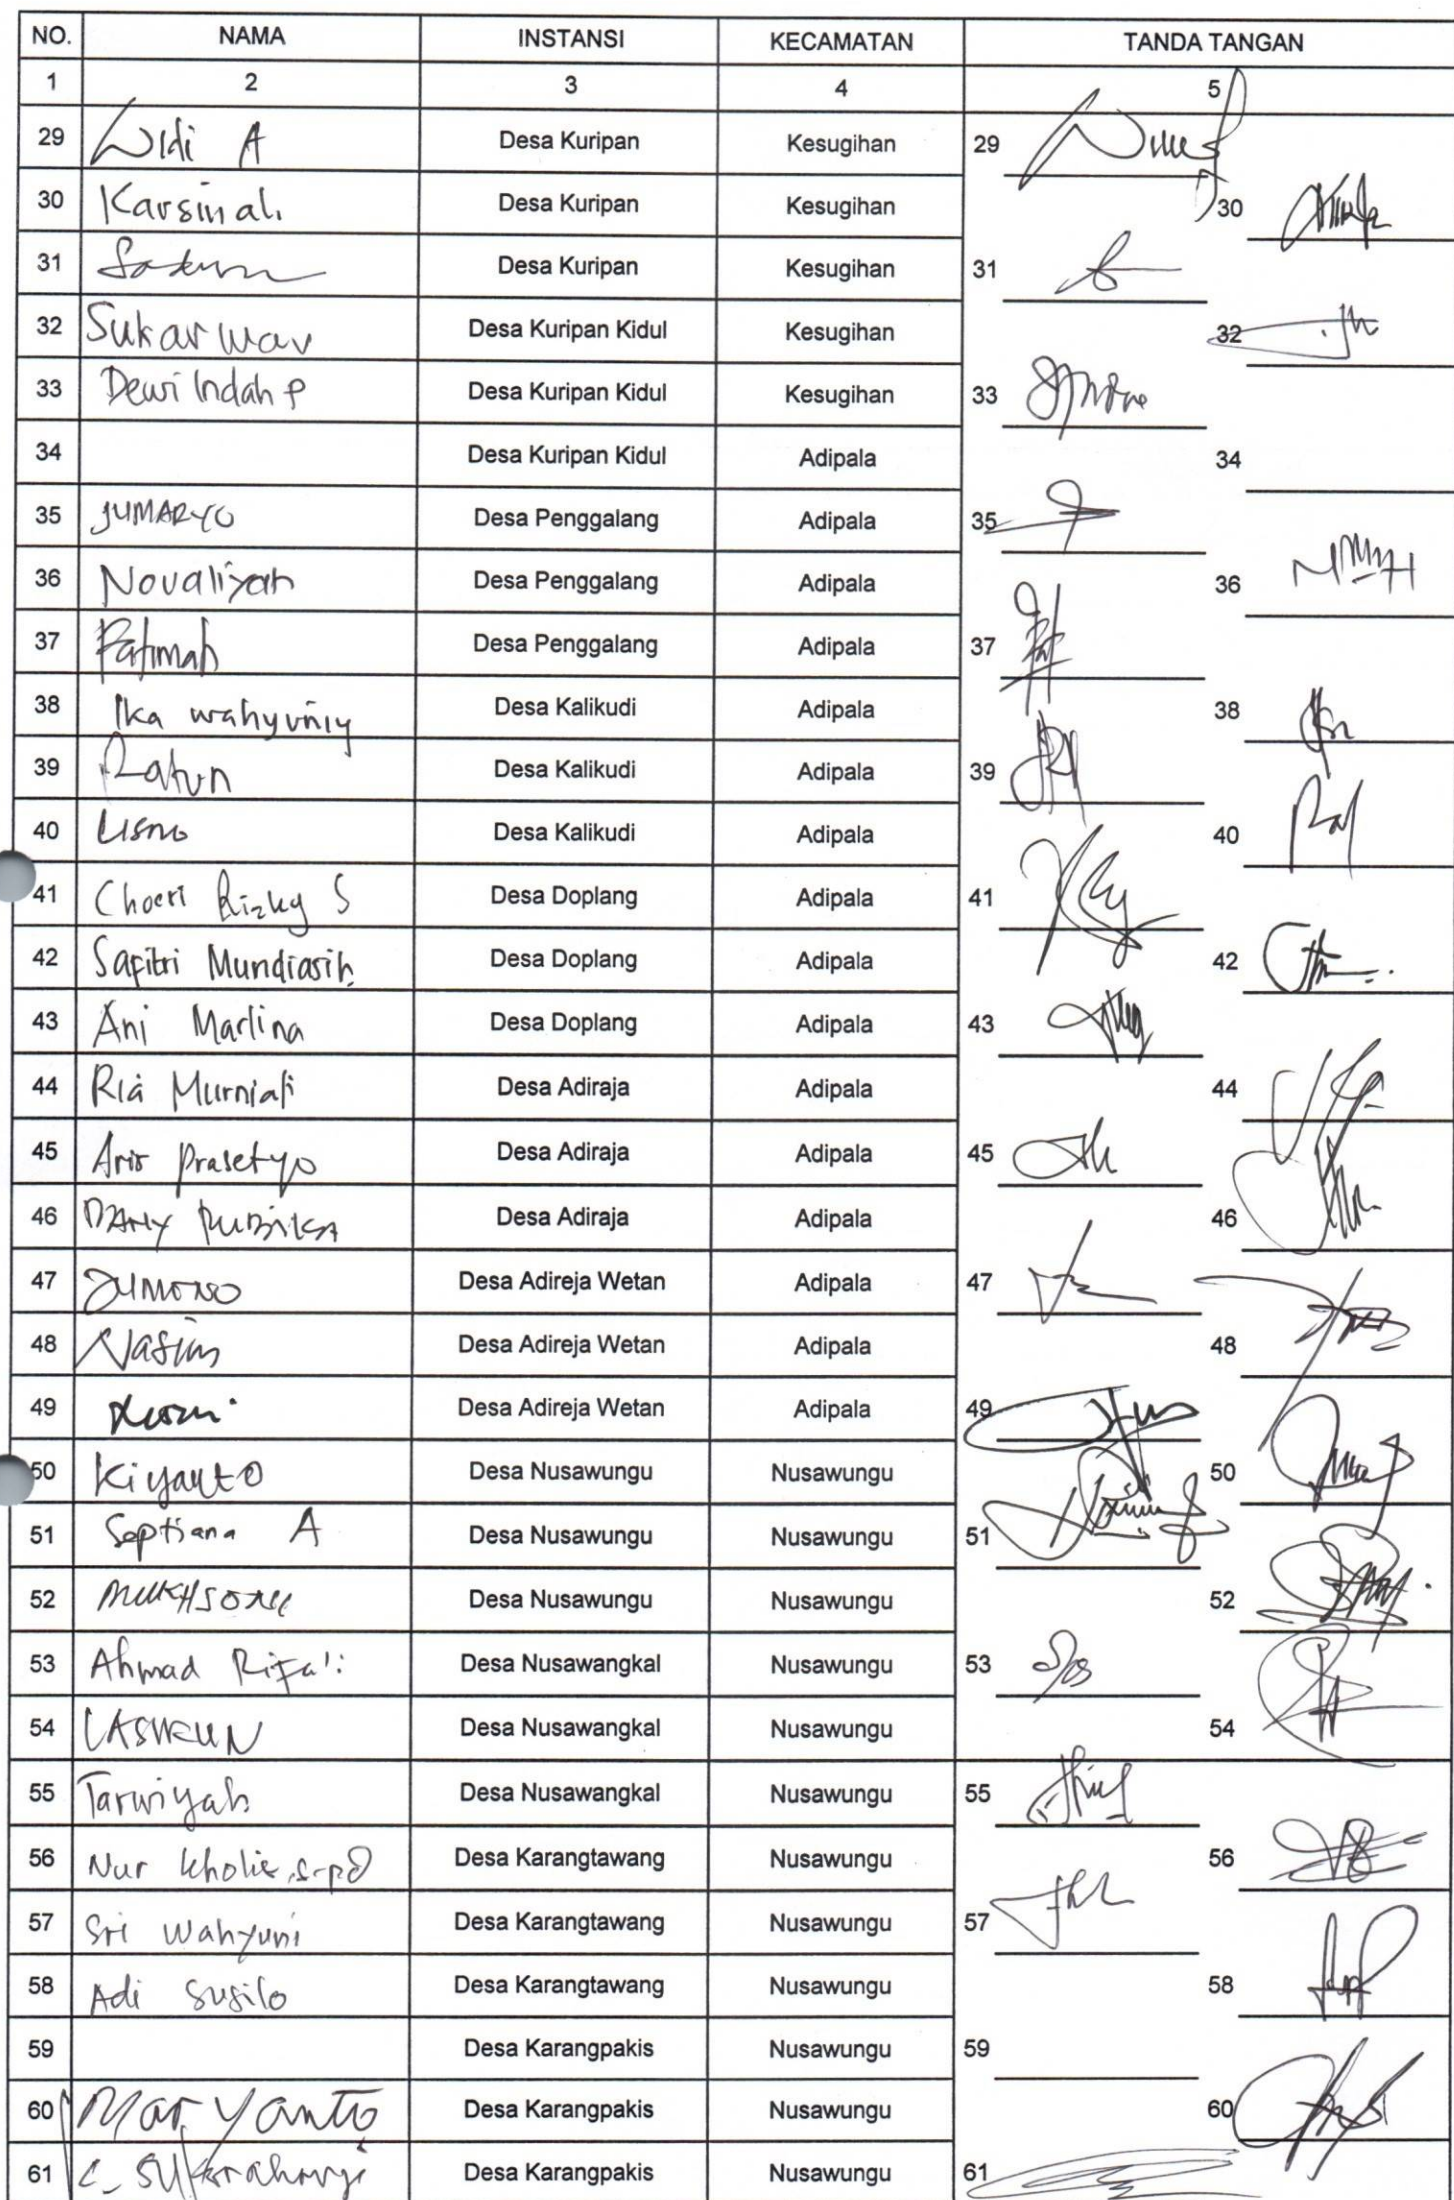 NO. NAMA INSTANSI KECAMATAN TANDA TANGAN
1 2 3 4 5
29 Widi A Desa Kuripan Kesugihan 29
30 Karsinah Desa Kuripan Kesugihan 30
31 Desa Kuripan Kesugihan 31
32 Sukarwan Desa Kuripan Kidul Kesugihan 32
33 Dewi Indah P Desa Kuripan Kidul Kesugihan 33
34 Desa Kuripan Kidul Adipala 34
35 JUMARYO Desa Penggalang Adipala 35
36 Novaliyah Desa Penggalang Adipala 36
37 Fatimah Desa Penggalang Adipala 37
38 Ika wahyuniy Desa Kalikudi Adipala 38
39 Ratun Desa Kalikudi Adipala 39
40 Lisno Desa Kalikudi Adipala 40
41 Choeri Rizky S Desa Doplang Adipala 41
42 Sapitri Mundiasih Desa Doplang Adipala 42
43 Ani Marlina Desa Doplang Adipala 43
44 Ria Murniati Desa Adiraja Adipala 44
45 Aris Prasetyo Desa Adiraja Adipala 45
46 DANY Desa Adiraja Adipala 46
47 JUMONO Desa Adireja Wetan Adipala 47
48 Nasim Desa Adireja Wetan Adipala 48
49 Desa Adireja Wetan Adipala 49
50 Kiyanto Desa Nusawungu Nusawungu 50
51 Septiana A Desa Nusawungu Nusawungu 51
52 Desa Nusawungu Nusawungu 52
53 Ahmad Rifa'i Desa Nusawangkal Nusawungu 53
54 LASWKUN Desa Nusawangkal Nusawungu 54
55 Tarwiyah Desa Nusawangkal Nusawungu 55
56 Nur Kholis, S.Pd Desa Karangtawang Nusawungu 56
57 Sri Wahyuni Desa Karangtawang Nusawungu 57
58 Adi Susilo Desa Karangtawang Nusawungu 58
59 Desa Karangpakis Nusawungu 59
60 Maryanto Desa Karangpakis Nusawungu 60
61 Desa Karangpakis Nusawungu 61